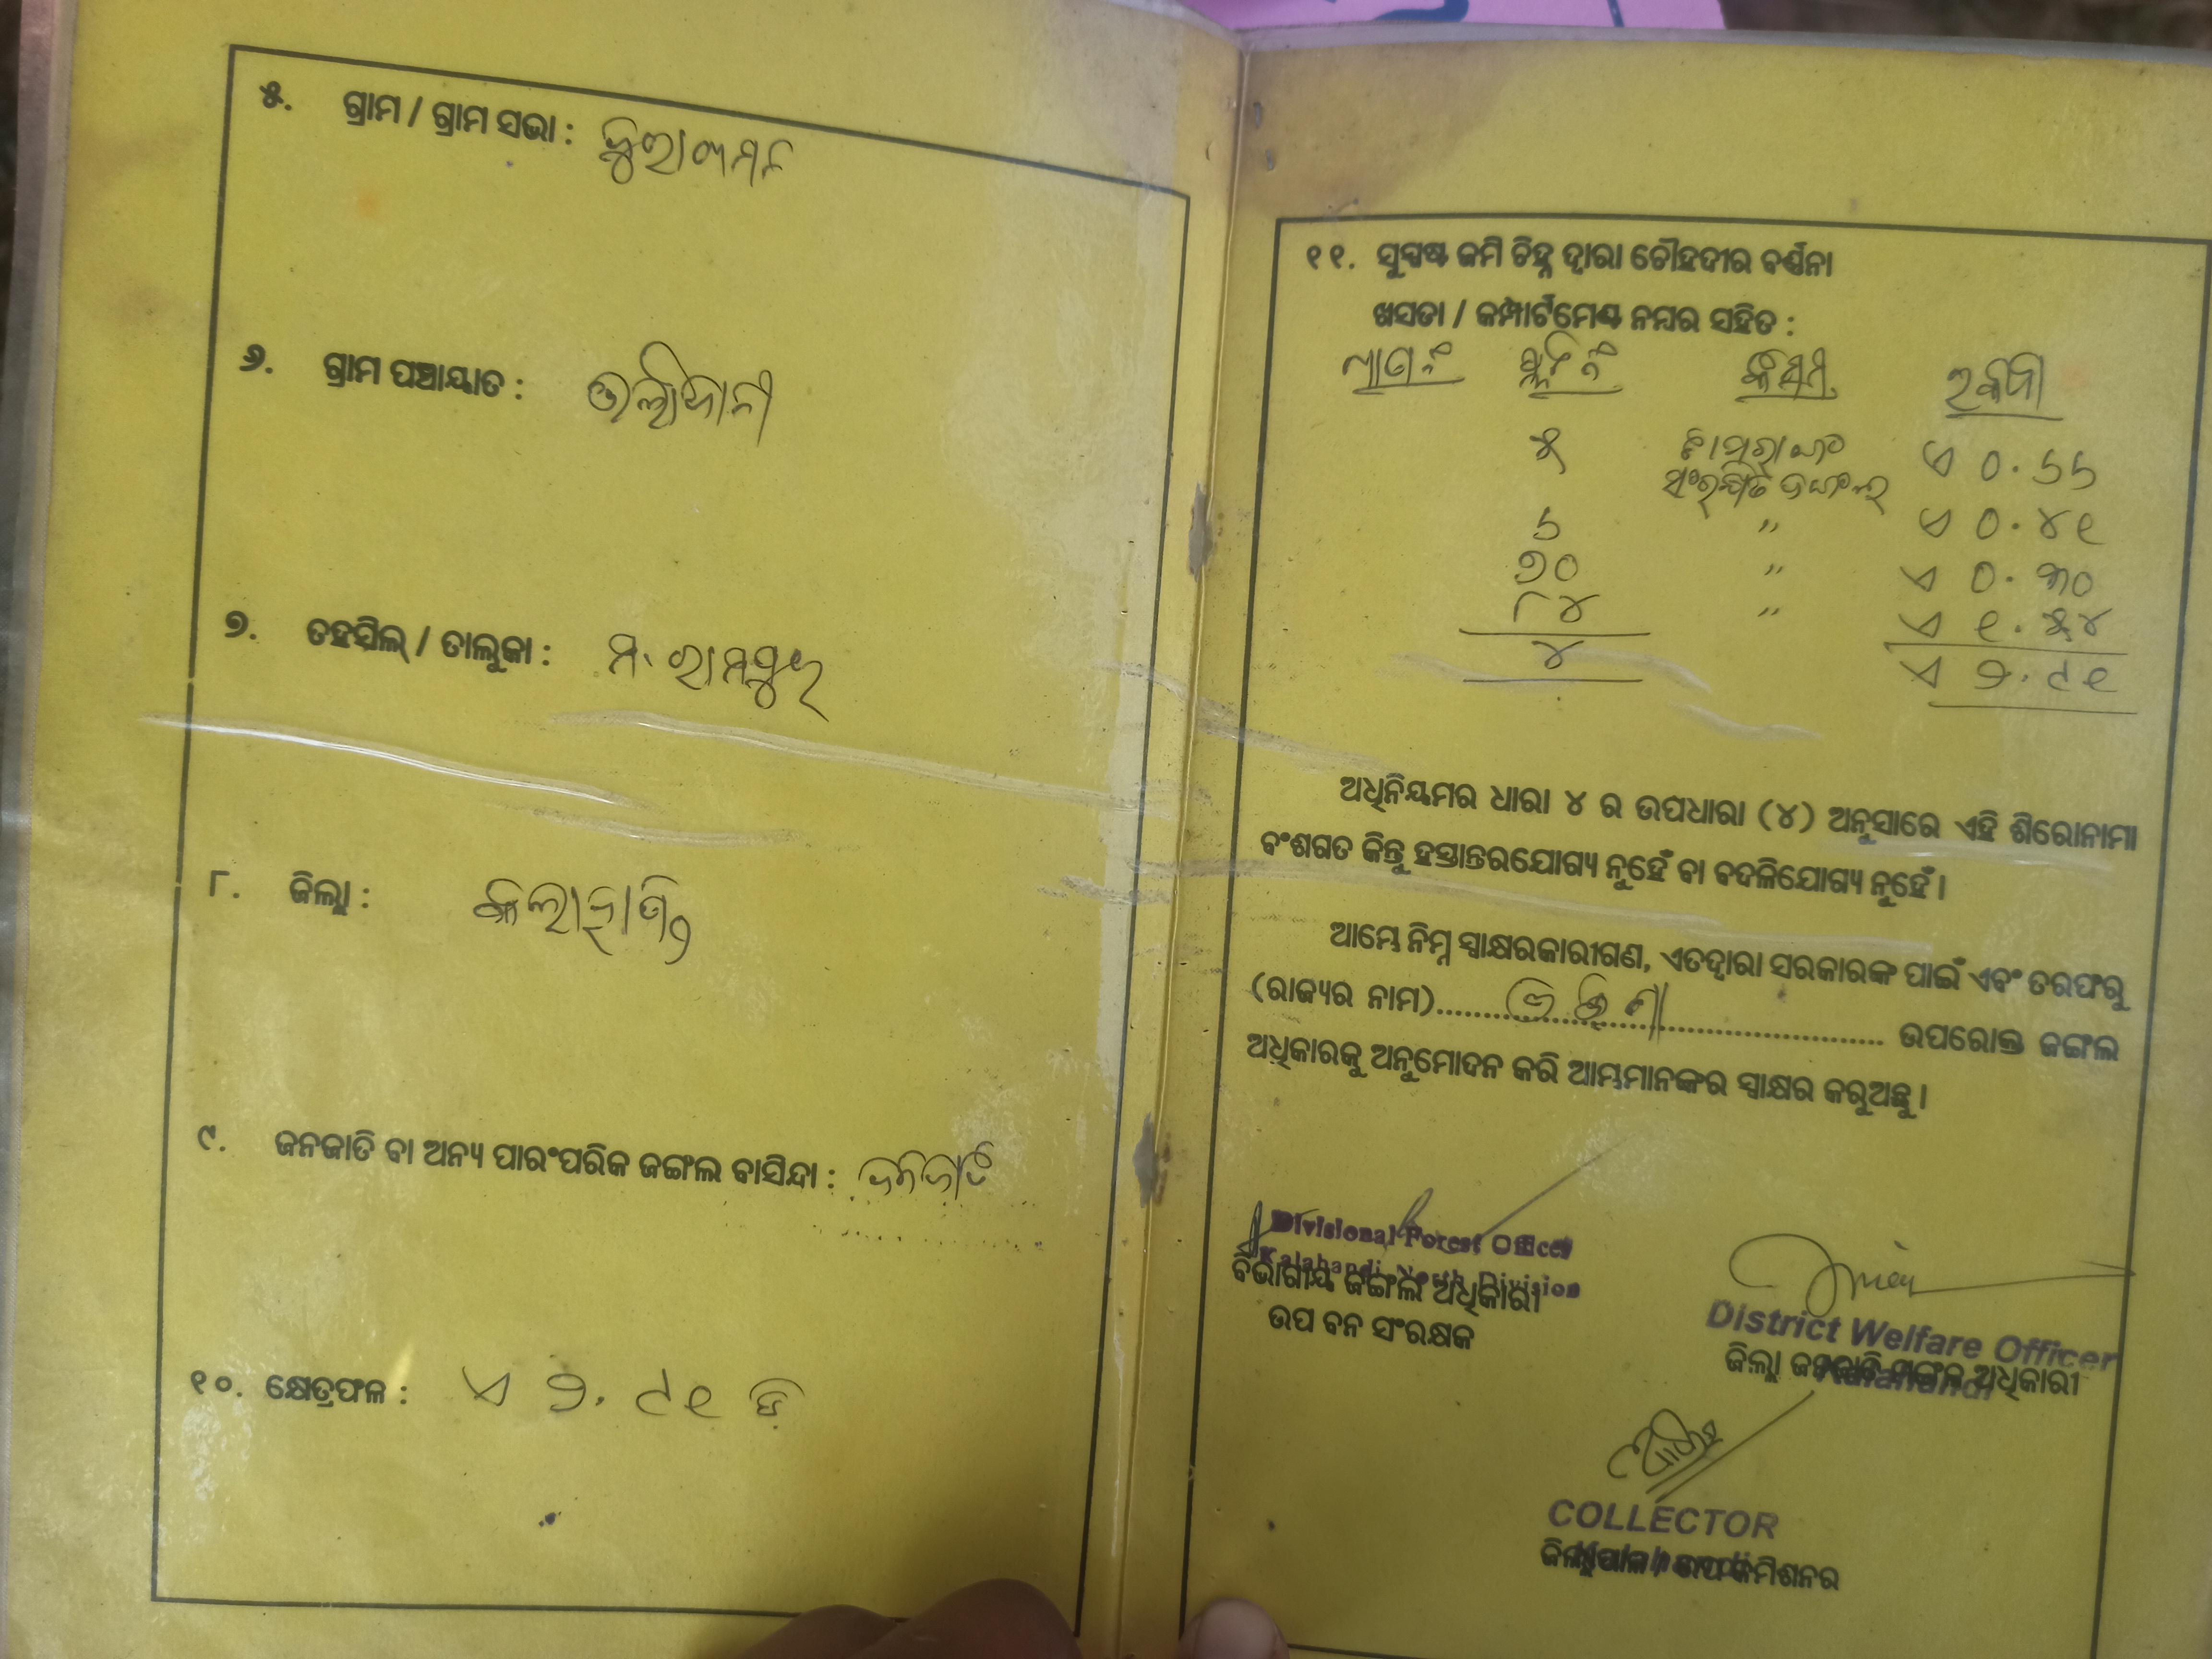 ୫. ଗ୍ରାମ / ଗ୍ରାମ ସଭା :
୬. ଗ୍ରାମ ପଞ୍ଚାୟାତ :
୭. ତହସିଲ୍ / ତାଲୁକା : ମ. ରାମପୁର
୮. ଜିଲ୍ଲା : କଳାହାଣ୍ଡି
୯. ଜନଜାତି ବା ଅନ୍ୟ ପାରଂପରିକ ଜଙ୍ଗଲ ବାସିନ୍ଦା : ଜନଜାତି
୧୦. କ୍ଷେତ୍ରଫଳ : ଏ ୨.୯୧ ଡି
୧୧. ସୁସ୍ପଷ୍ଟ ଜମି ଚିହ୍ନ ଦ୍ୱାରା ଚୌହଦୀର ବର୍ଣ୍ଣନା
ଖସଡା / କମ୍ପାର୍ଟମେଣ୍ଟ ନମ୍ବର ସହିତ :
ପ୍ଲଟ ନଂ କିସମ ରକବା
୫ ଏ ୦.୬୬
ସଂରକ୍ଷିତ ଜଙ୍ଗଲ
୬ " ଏ ୦.୪୧
୭୦ " ଏ ୦.୩୦
୮୪ " ଏ ୧.୫୪
୪ ଏ ୨.୯୧
ଅଧିନିୟମର ଧାରା ୪ ର ଉପଧାରା (୪) ଅନୁସାରେ ଏହି ଶିରୋନାମା
ବଂଶଗତ କିନ୍ତୁ ହସ୍ତାନ୍ତରଯୋଗ୍ୟ ନୁହେଁ ବା ବଦଳିଯୋଗ୍ୟ ନୁହେଁ।
ଆମ୍ଭେ ନିମ୍ନ ସ୍ୱାକ୍ଷରକାରୀଗଣ, ଏତଦ୍ୱାରା ସରକାରଙ୍କ ପାଇଁ ଏବଂ ତରଫରୁ
(ରାଜ୍ୟର ନାମ)..........ଓଡିଶା.......... ଉପରୋକ୍ତ ଜଙ୍ଗଲ
ଅଧିକାରକୁ ଅନୁମୋଦନ କରି ଆମ୍ଭମାନଙ୍କର ସ୍ୱାକ୍ଷର କରୁଅଛୁ।
Divisional Forest Officer
Kalahandi North Division
ବିଭାଗୀୟ ଜଙ୍ଗଲ ଅଧିକାରୀ
ଉପ ବନ ସଂରକ୍ଷକ
District Welfare Officer
Kalahandi
ଜିଲ୍ଲା ଜନଜାତି ମଙ୍ଗଳ ଅଧିକାରୀ
COLLECTOR
Kalahandi
ଜିଲ୍ଲାପାଳ / ଉପ କମିଶନର